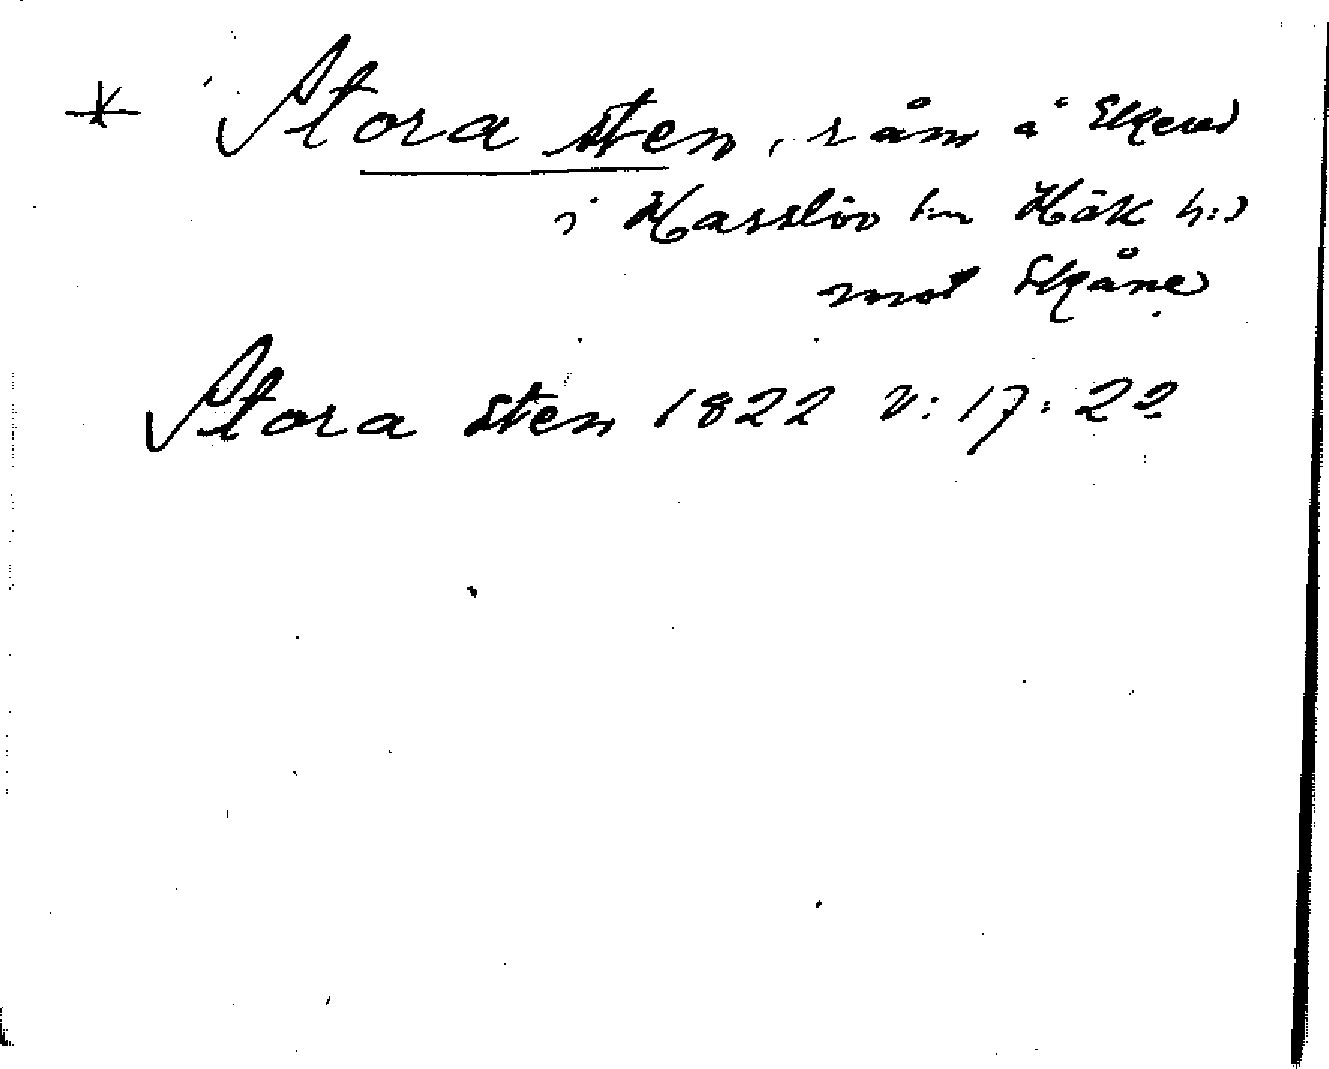 * Stora sten, råm å Skeen
i Hasslöv sn Hök h:d
mot Skåne
Stora sten 1822 V: 17: 22